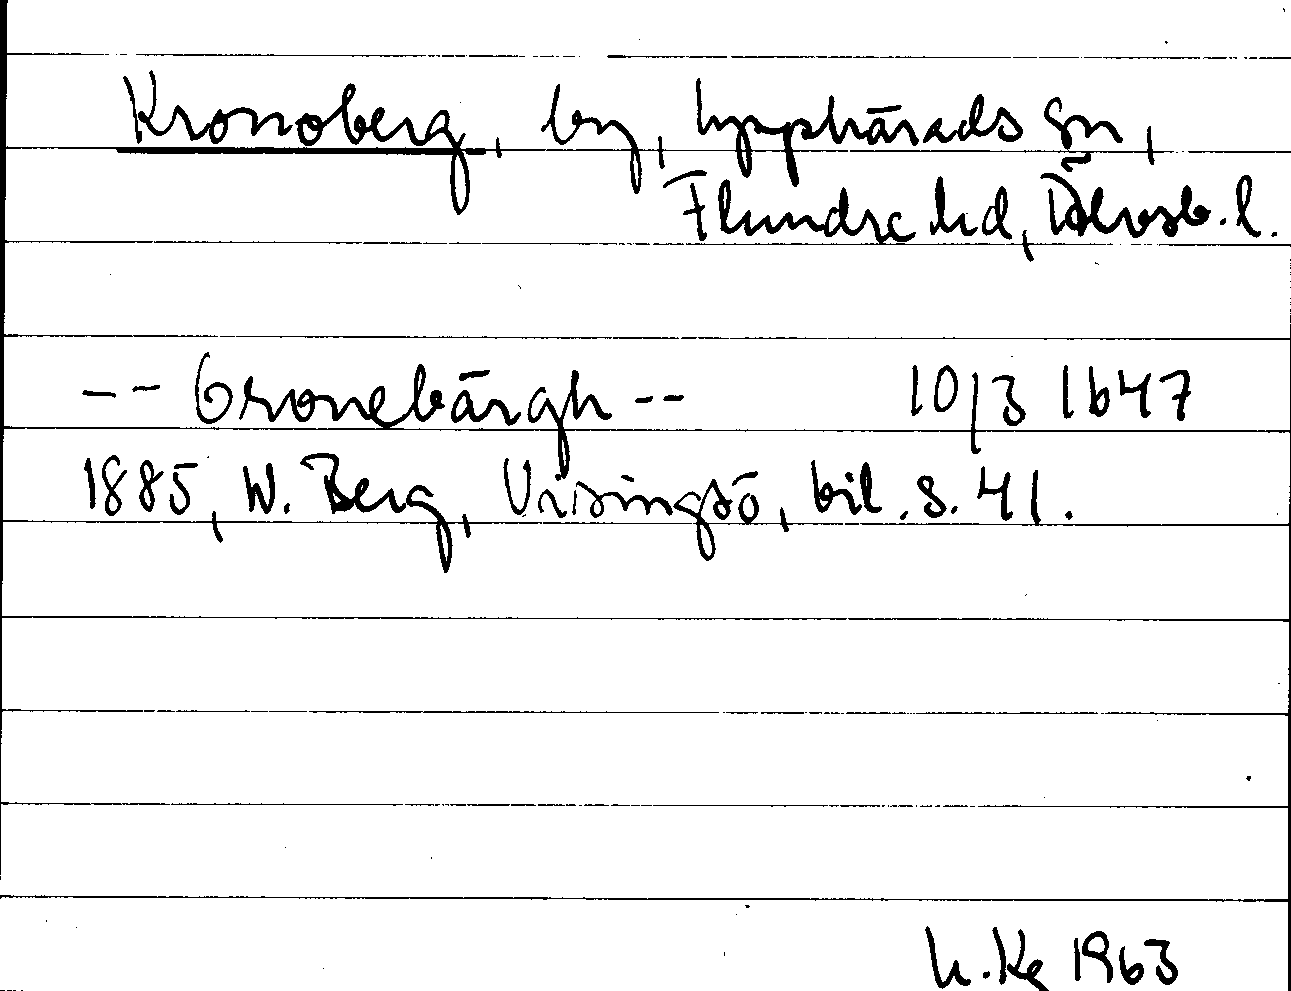 Kronoberg, by, Hyssphärads sn,
Flundre hd, Älvsb. l.
-- Cronebärgh -- 10/3 1647
1885, W. Berg, Visingsö, bil. s. 41.
1963